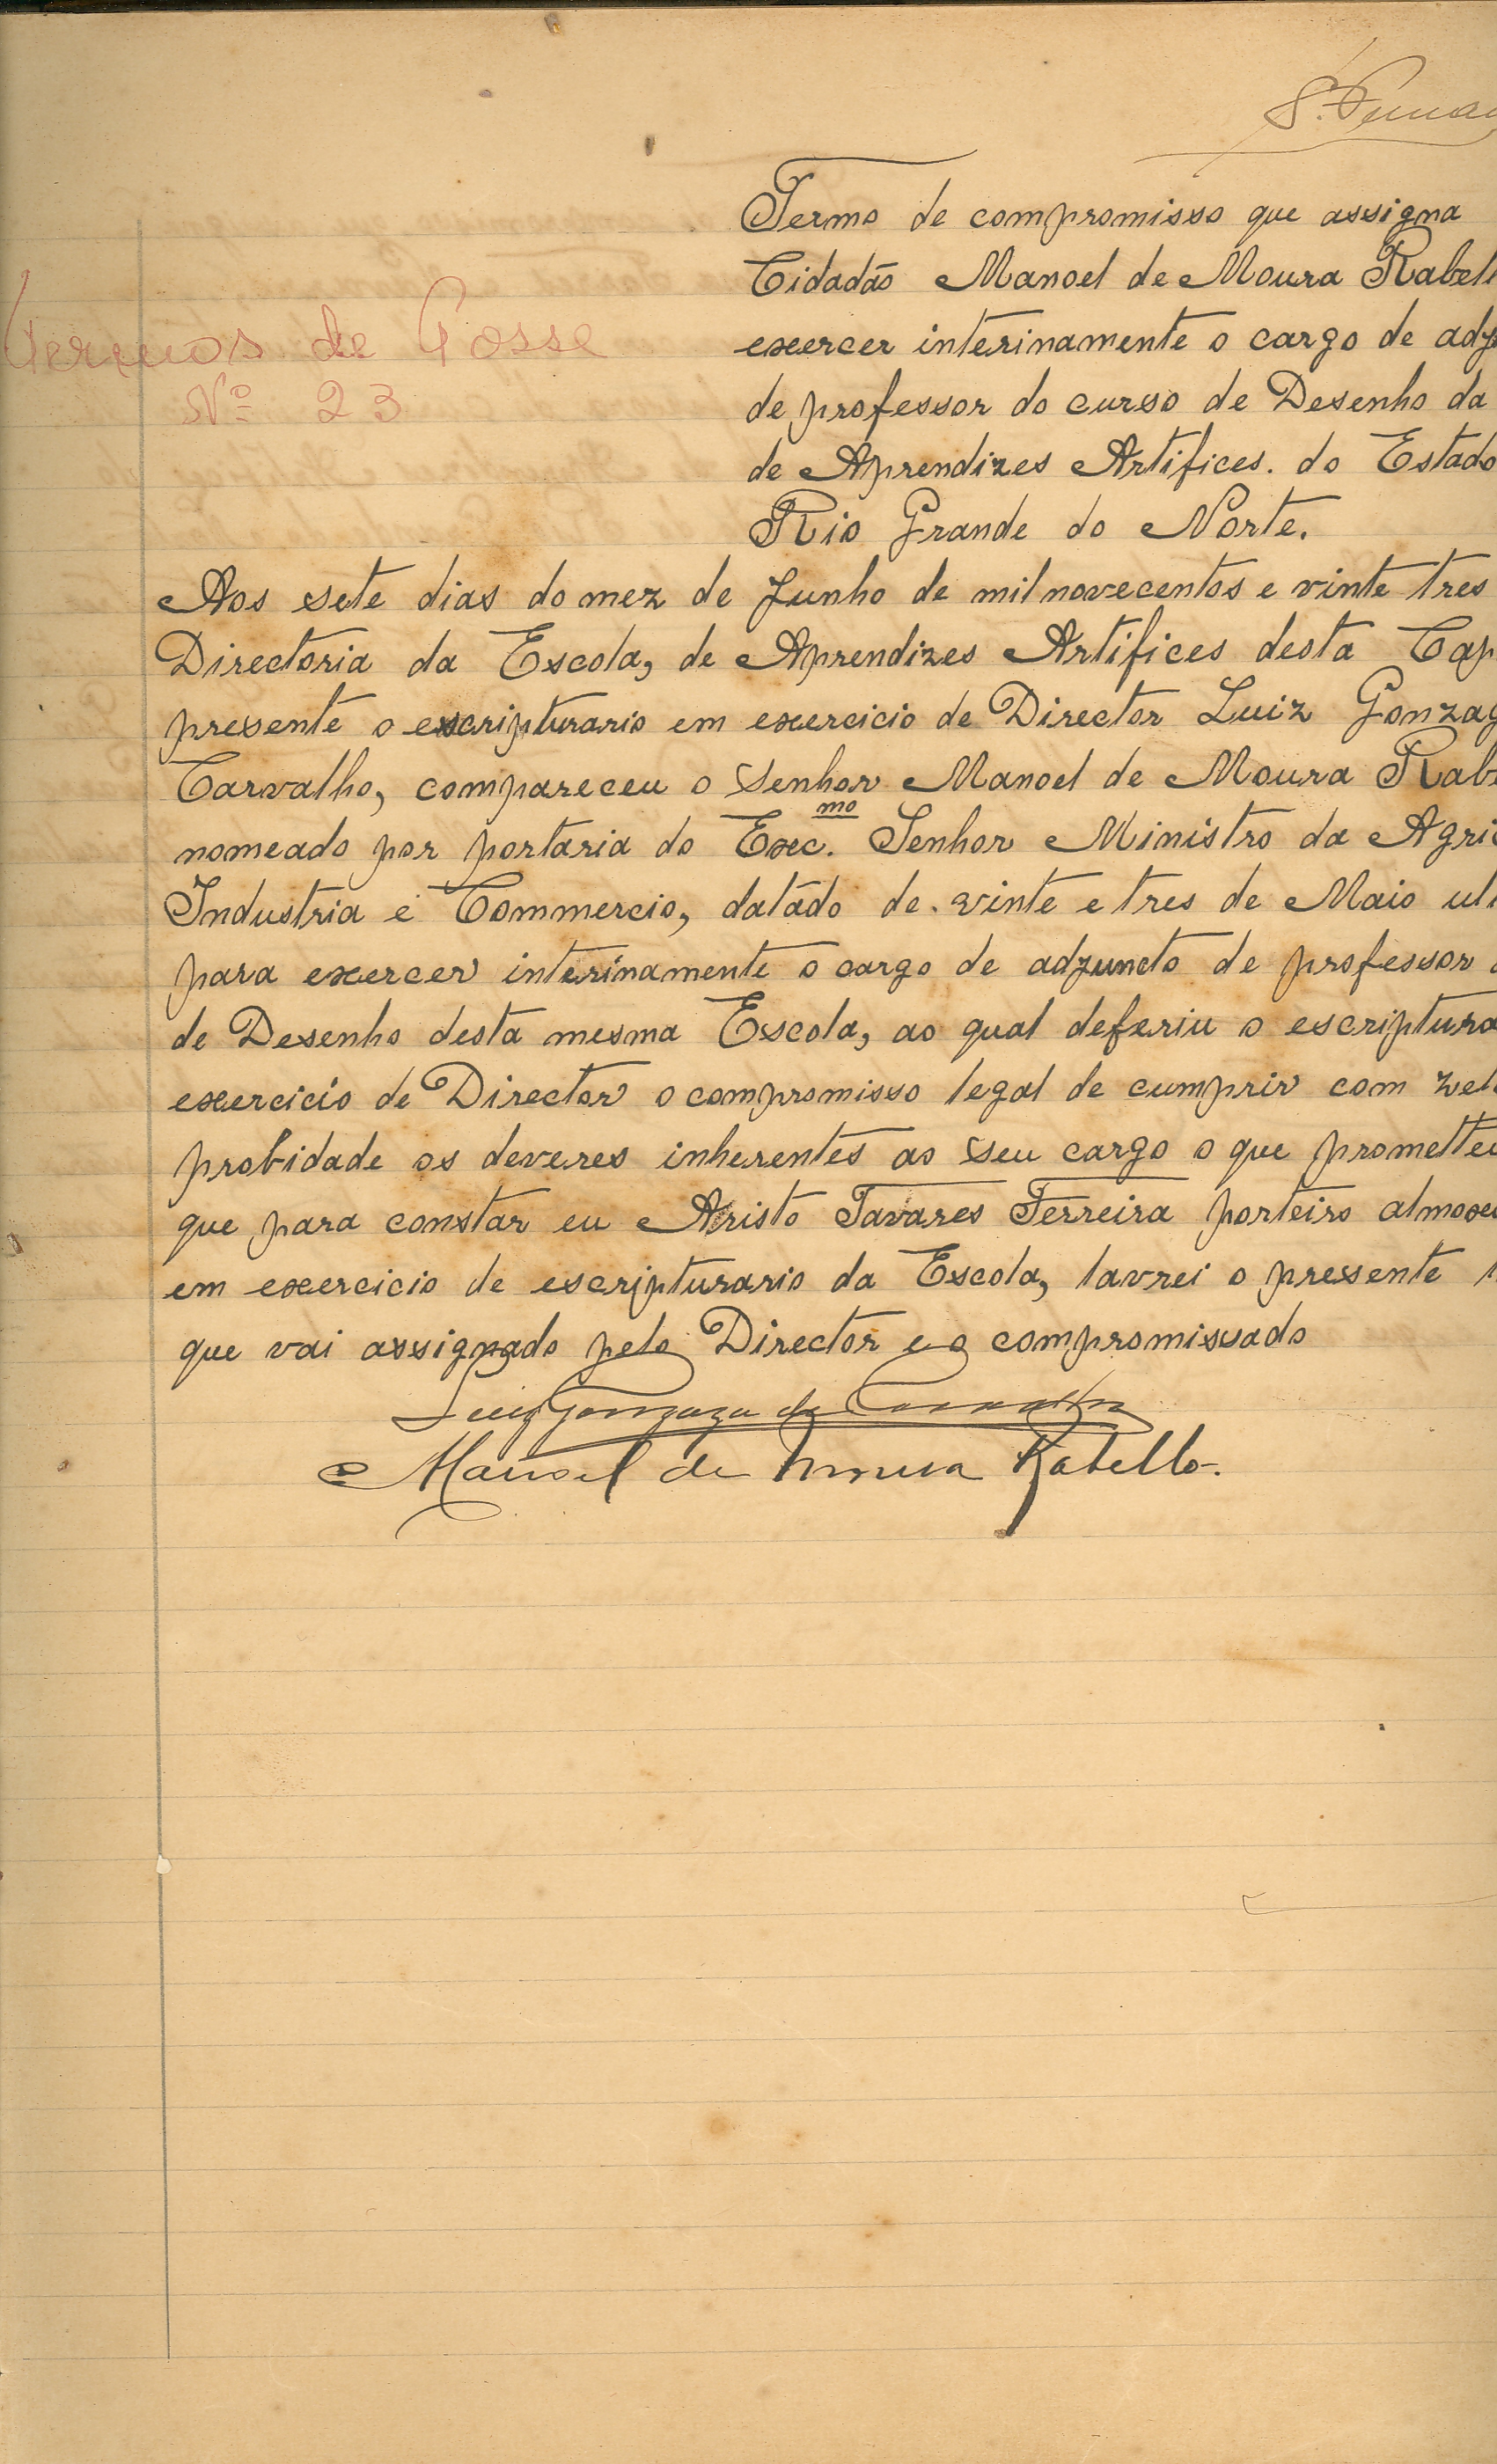 Termo de compromisso que assigna
Cidadão Manoel de Moura Rabell
exercer interinamente o cargo de adj
de professor do curso de Desenho da
de Aprendizes Artifices. do Estado
Rio Grande do Norte.
Termos de Posse
Nº 23
Aos sete dias do mez de Junho de mil novecentos e vinte tres
Directoria da Escola, de Aprendizes Artifices desta Cap
presente o escripturario em exercicio de Director Luiz Gonzag
Carvalho, compareceu o Senhor Manoel de Moura Rabe
nomeado por portaria do Exc.mo Senhor Ministro da Agric
Industria e Commercio, datádo de. vinte e tres de Maio ult
para exercer interinamente o cargo de adjuncto de professor
de Desenho desta mesma Escola, ao qual deferiu o escriptura
exercicio de Director o compromisso legal de cumprir com zel
probidade os deveres inherentes ao seu cargo o que prometteu
que para constar eu Aristo Tavares Ferreira porteiro almoxa
em exercicio de escripturario da Escola, lavrei o presente
que vai assignado pelo Director e o compromissado
Luiz Gonzaga de Carvalho
Manoel de Moura Rabello.